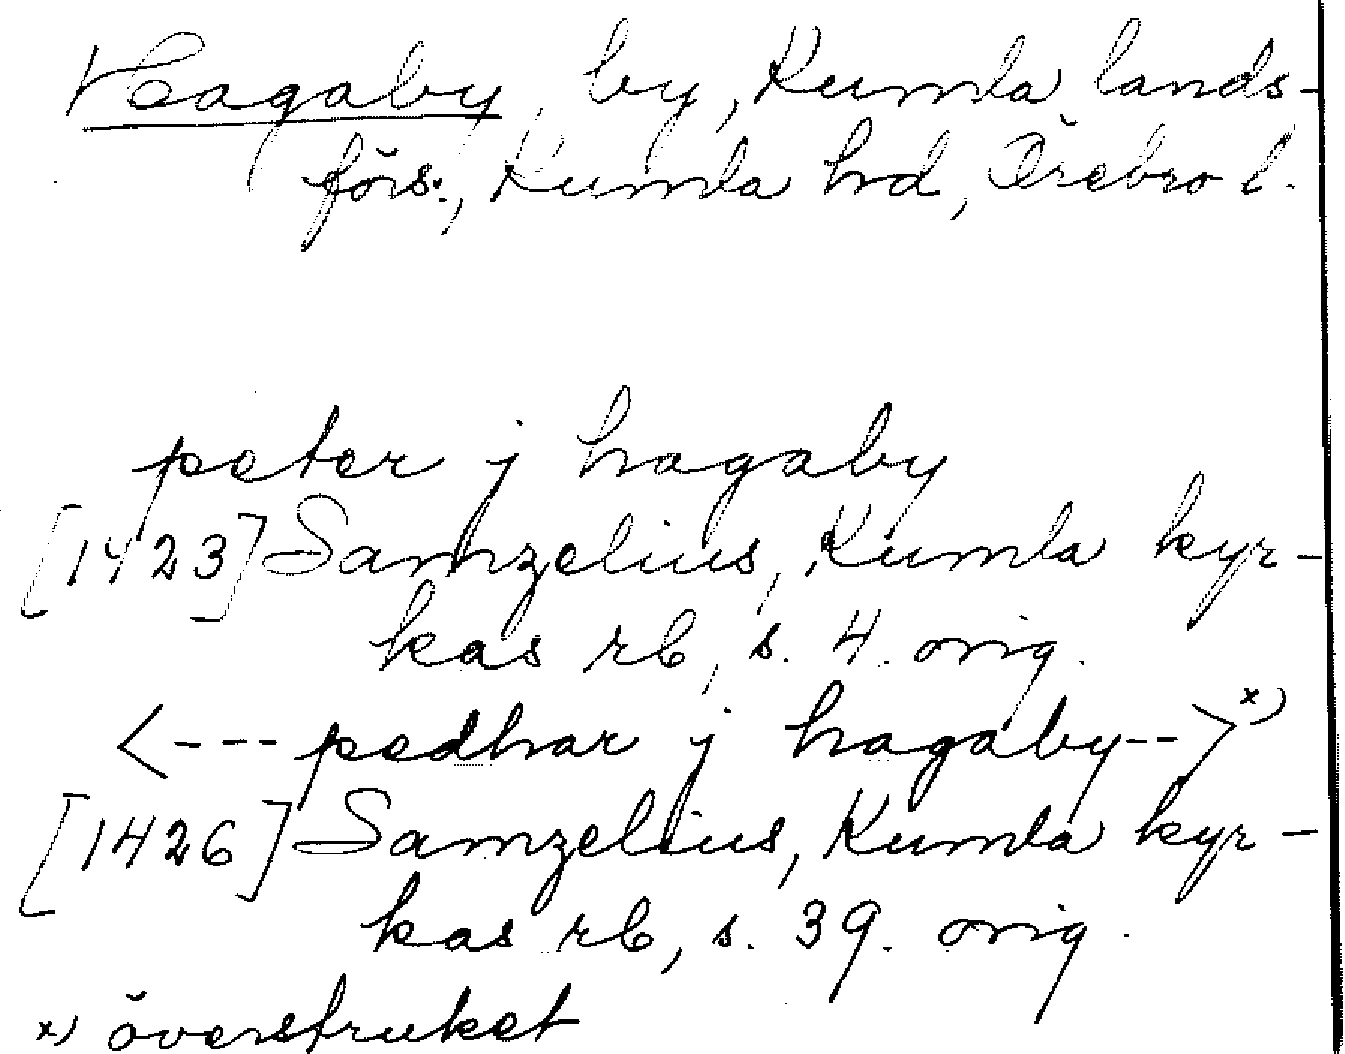 Hagaby, by, Kumla lands-
förs., Kumla hd, Örebro l.
peter j hagaby
[1423] Samzelius, Kumla kyr-
kas rb, s. 4. orig.
<---pedhar j hagaby-->x)
[1426] Samzelius, Kumla kyr-
kas rb, s. 39. orig.
x) överstruket